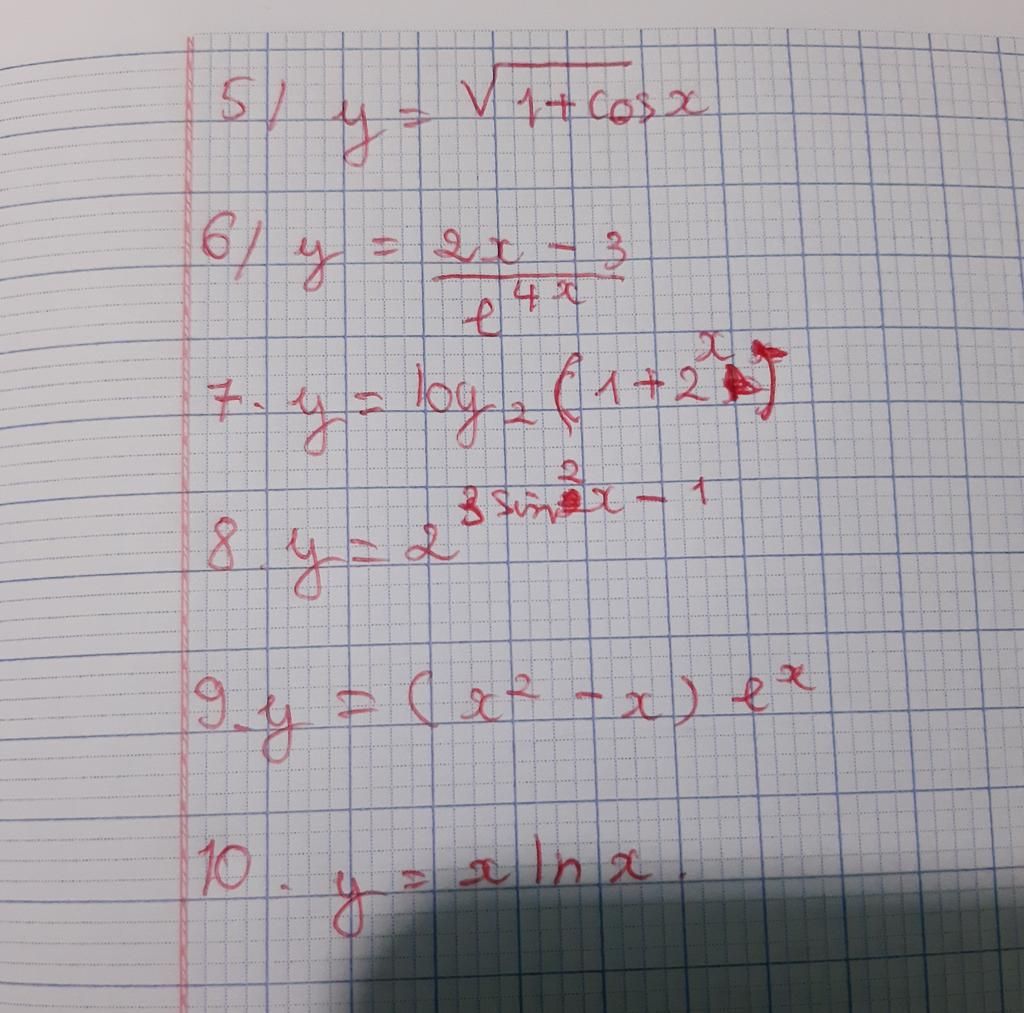 5/ y = √1+cosx
6/ y = (2x - 3)/e^4x
7. y = log₂ (1+2^x)
8. y = 2^3 sin²x - 1
9. y = (x² - x) e^x
10. y = x ln x.